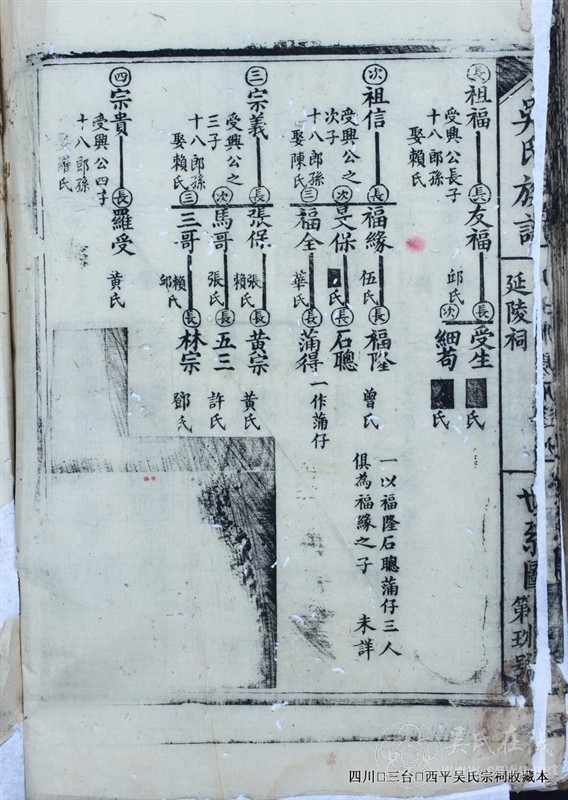 吳氏族譜
延陵祠
世系圖
長 祖福
受興公長子
十八郎孫
娶賴氏
長 友福
邱氏
長 受生
氏
次 細苟
氏
次 祖信
受興公之
次子
十八郎孫
娶陳氏
長 福緣
伍氏
長 福隆
曾氏
次 旻保
氏
長 石聰
三 福全
華氏
長 蒲得
一作蒲仔
一以福隆石聰蒲仔三人
俱為福緣之子 未詳
三 宗義
受興公之
三子
十八郎孫
娶賴氏
長 張保
張氏
賴
長 黃宗
黃氏
次 馬哥
張氏
長 五三
許氏
三 三哥
賴氏
邱
長 林宗
鄧氏
四 宗貴
受興公四子
十八郎孫
娶羅氏
長 羅受
黃氏
吴氏在线
四川□三台□西平吴氏宗祠收藏本